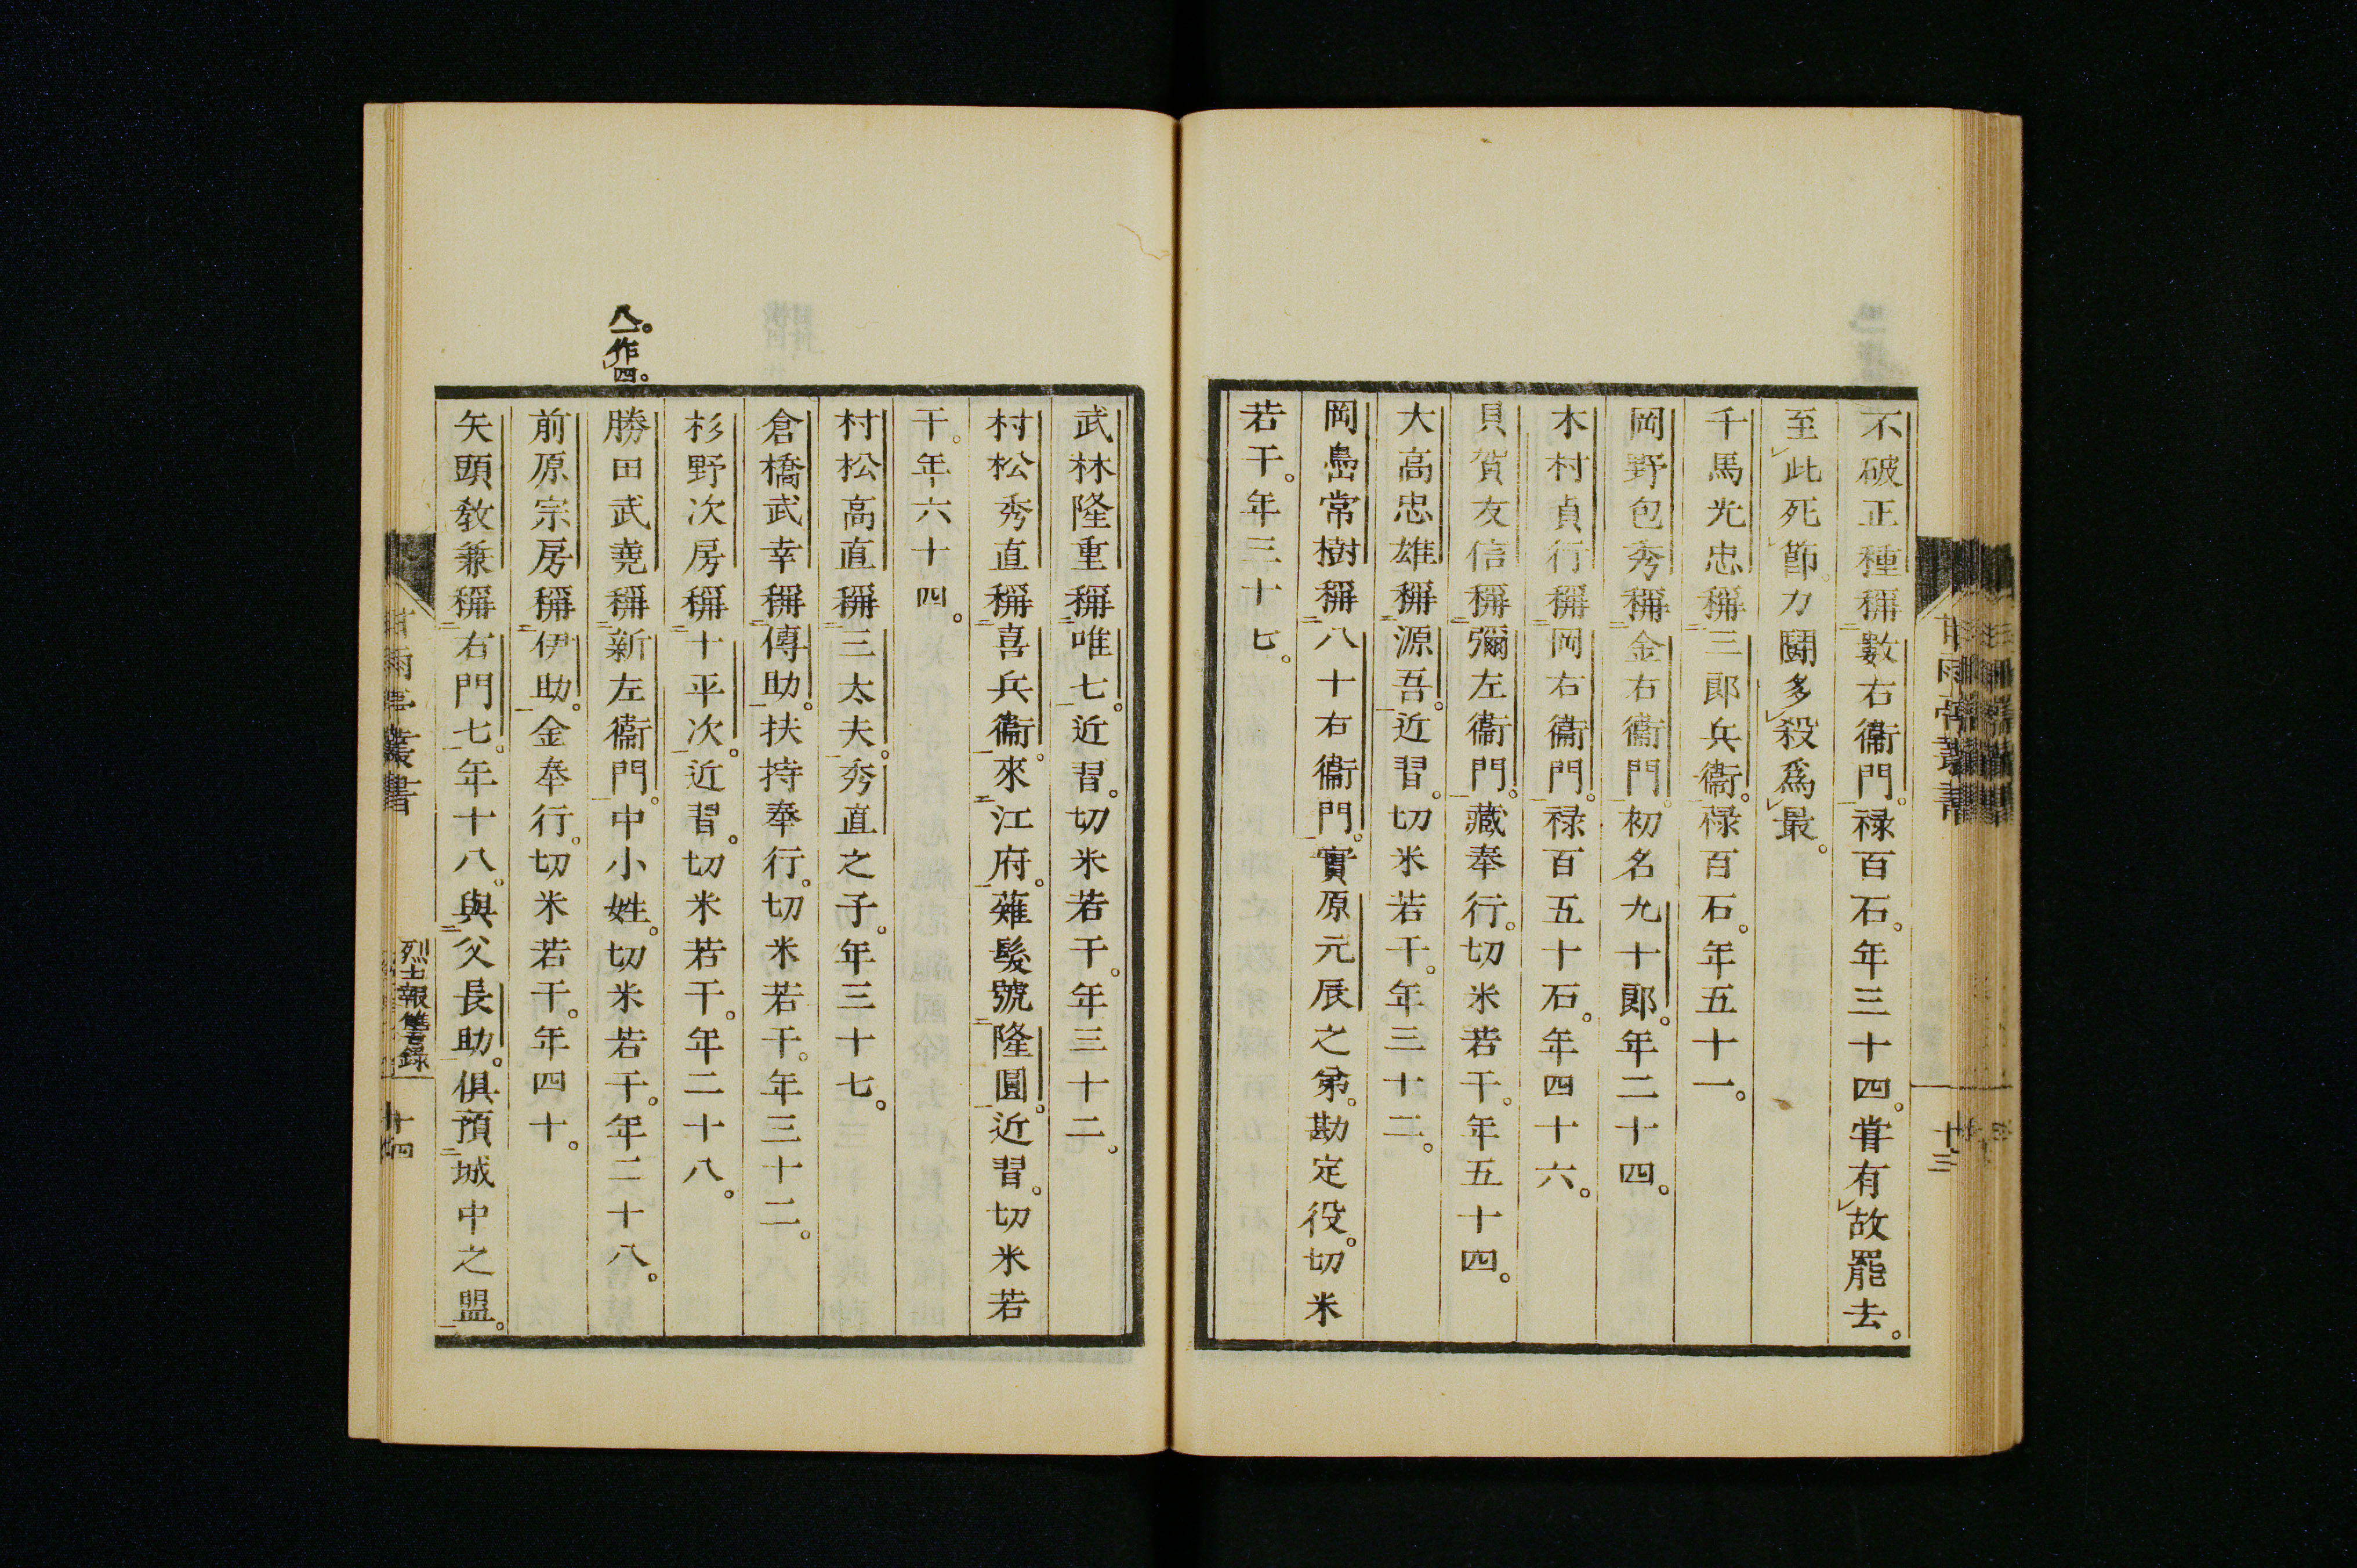 不破正種稱數右衞門。禄百石。年三十四。嘗有故罷去。
至此死節。力鬪多殺爲最。
千馬光忠稱三郎兵衞。禄百石。年五十一。
岡野包秀稱金右衞門。初名九十郎。年二十四。
木村貞行稱岡右衞門。禄百五十石。年四十六。
貝賀友信稱彌左衞門。藏奉行。切米若干。年五十四。
大高忠雄稱源吾。近習。切米若干。年三十二。
岡嶌常樹稱八十右衞門。實原元辰之弟。勘定役。切米
若干。年三十七。
甘雨亭叢書
十三
武林隆重稱唯七。近習。切米若干。年三十二。
村松秀直稱喜兵衞。來江府。薙髮號隆圓。近習。切米若
干。年六十四。
村松高直稱三太夫。秀直之子。年三十七。
倉橋武幸稱傳助。扶持奉行。切米若干。年三十二。
杉野次房稱十平次。近習。切米若干。年二十八。
八。一作四。
勝田武堯稱新左衞門。中小姓。切米若干。年二十八。
前原宗房稱伊助。金奉行。切米若干。年四十。
矢頭教兼稱右門七。年十八。與父長助。俱預城中之盟。
甘雨亭叢書
烈士報讐錄
十四